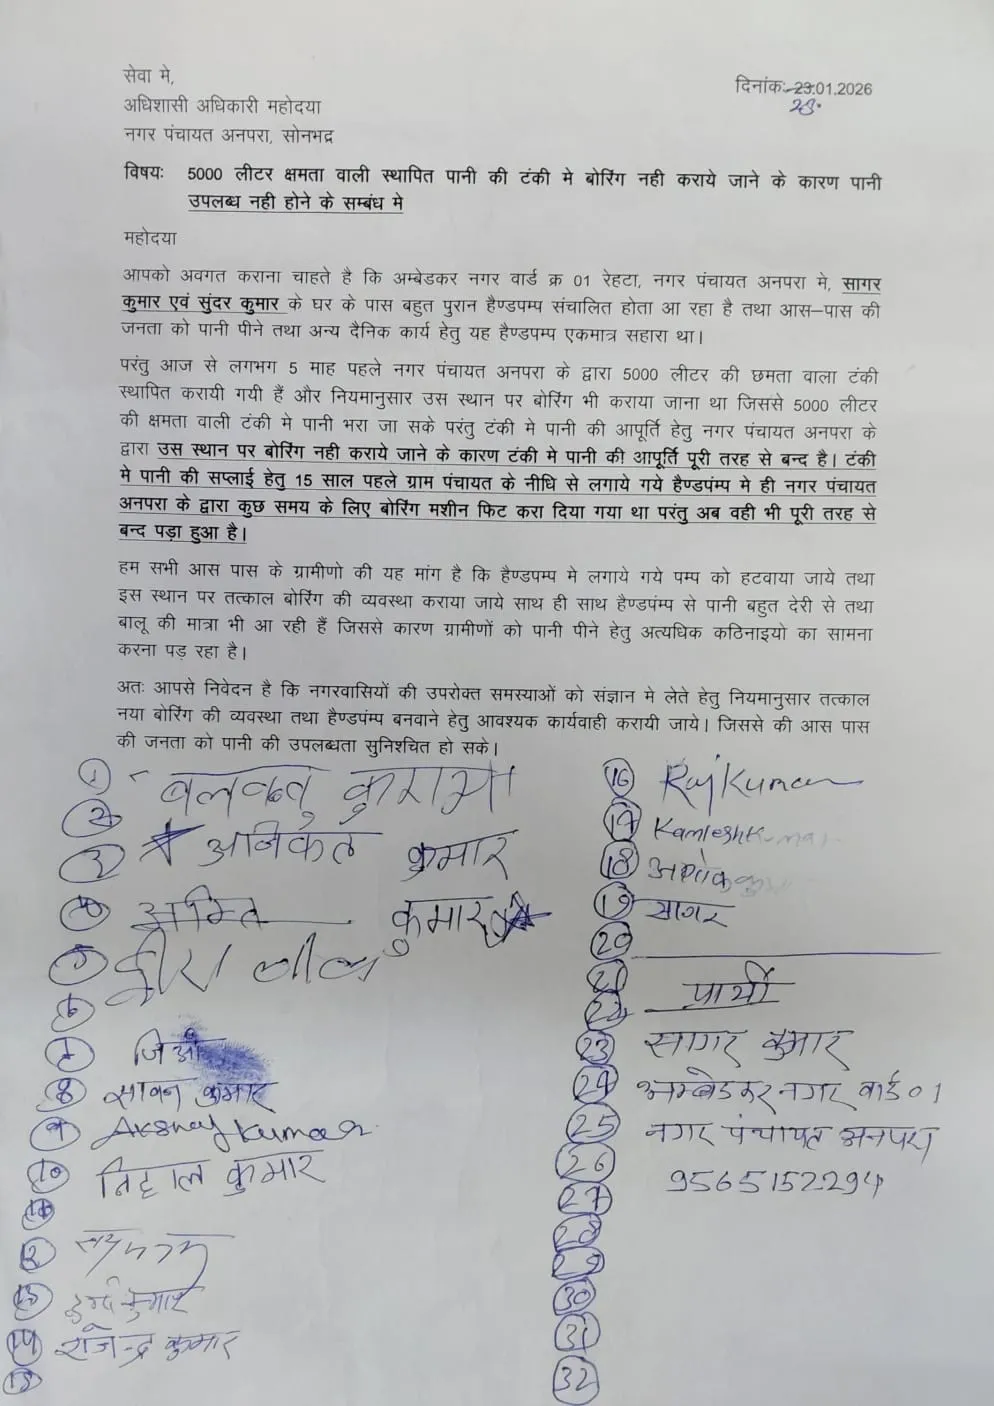 सेवा मे,
दिनांकः 29.01.2026
28.
अधिशासी अधिकारी महोदया
नगर पंचायत अनपरा, सोनभद्र
विषयः 5000 लीटर क्षमता वाली स्थापित पानी की टंकी मे बोरिंग नही कराये जाने के कारण पानी
उपलब्ध नही होने के सम्बंध मे
महोदया
आपको अवगत कराना चाहते है कि अम्बेडकर नगर वार्ड क्र 01 रेहटा, नगर पंचायत अनपरा मे, सागर
कुमार एवं सुंदर कुमार के घर के पास बहुत पुरान हैण्डपम्प संचालित होता आ रहा है तथा आस–पास की
जनता को पानी पीने तथा अन्य दैनिक कार्य हेतु यह हैण्डपम्प एकमात्र सहारा था।
परंतु आज से लगभग 5 माह पहले नगर पंचायत अनपरा के द्वारा 5000 लीटर की छमता वाला टंकी
स्थापित करायी गयी हैं और नियमानुसार उस स्थान पर बोरिंग भी कराया जाना था जिससे 5000 लीटर
की क्षमता वाली टंकी मे पानी भरा जा सके परंतु टंकी मे पानी की आपूर्ति हेतु नगर पंचायत अनपरा के
द्वारा उस स्थान पर बोरिंग नही कराये जाने के कारण टंकी मे पानी की आपूर्ति पूरी तरह से बन्द है। टंकी
मे पानी की सप्लाई हेतु 15 साल पहले ग्राम पंचायत के नीधि से लगाये गये हैण्डपंम्प मे ही नगर पंचायत
अनपरा के द्वारा कुछ समय के लिए बोरिंग मशीन फिट करा दिया गया था परंतु अब वही भी पूरी तरह से
बन्द पड़ा हुआ है।
हम सभी आस पास के ग्रामीणो की यह मांग है कि हैण्डपम्प मे लगाये गये पम्प को हटवाया जाये तथा
इस स्थान पर तत्काल बोरिंग की व्यवस्था कराया जाये साथ ही साथ हैण्डपंम्प से पानी बहुत देरी से तथा
बालू की मात्रा भी आ रही हैं जिससे कारण ग्रामीणों को पानी पीने हेतु अत्यधिक कठिनाइयो का सामना
करना पड़ रहा है।
अतः आपसे निवेदन है कि नगरवासियों की उपरोक्त समस्याओं को संज्ञान मे लेते हेतु नियमानुसार तत्काल
नया बोरिंग की व्यवस्था तथा हैण्डपंम्प बनवाने हेतु आवश्यक कार्यवाही करायी जाये। जिससे की आस पास
की जनता को पानी की उपलब्धता सुनिश्चित हो सके।
1
2
3 अनिकेत कुमार
4 अमित कुमार
5 हीरा लाल
6
7
8 सावन कुमार
9 Akshay Kumar
10 निहाल कुमार
11
12
13 कुमार
14 राजेन्द्र कुमार
15
16 RajKumar
17 Kamlesh Kumar
18 अशोक
19 सागर
20
21
22 प्रार्थी
23 सागर कुमार
24 अम्बेडकर नगर वार्ड 01
25 नगर पंचायत अनपरा
26 9565152294
27
28
29
30
31
32